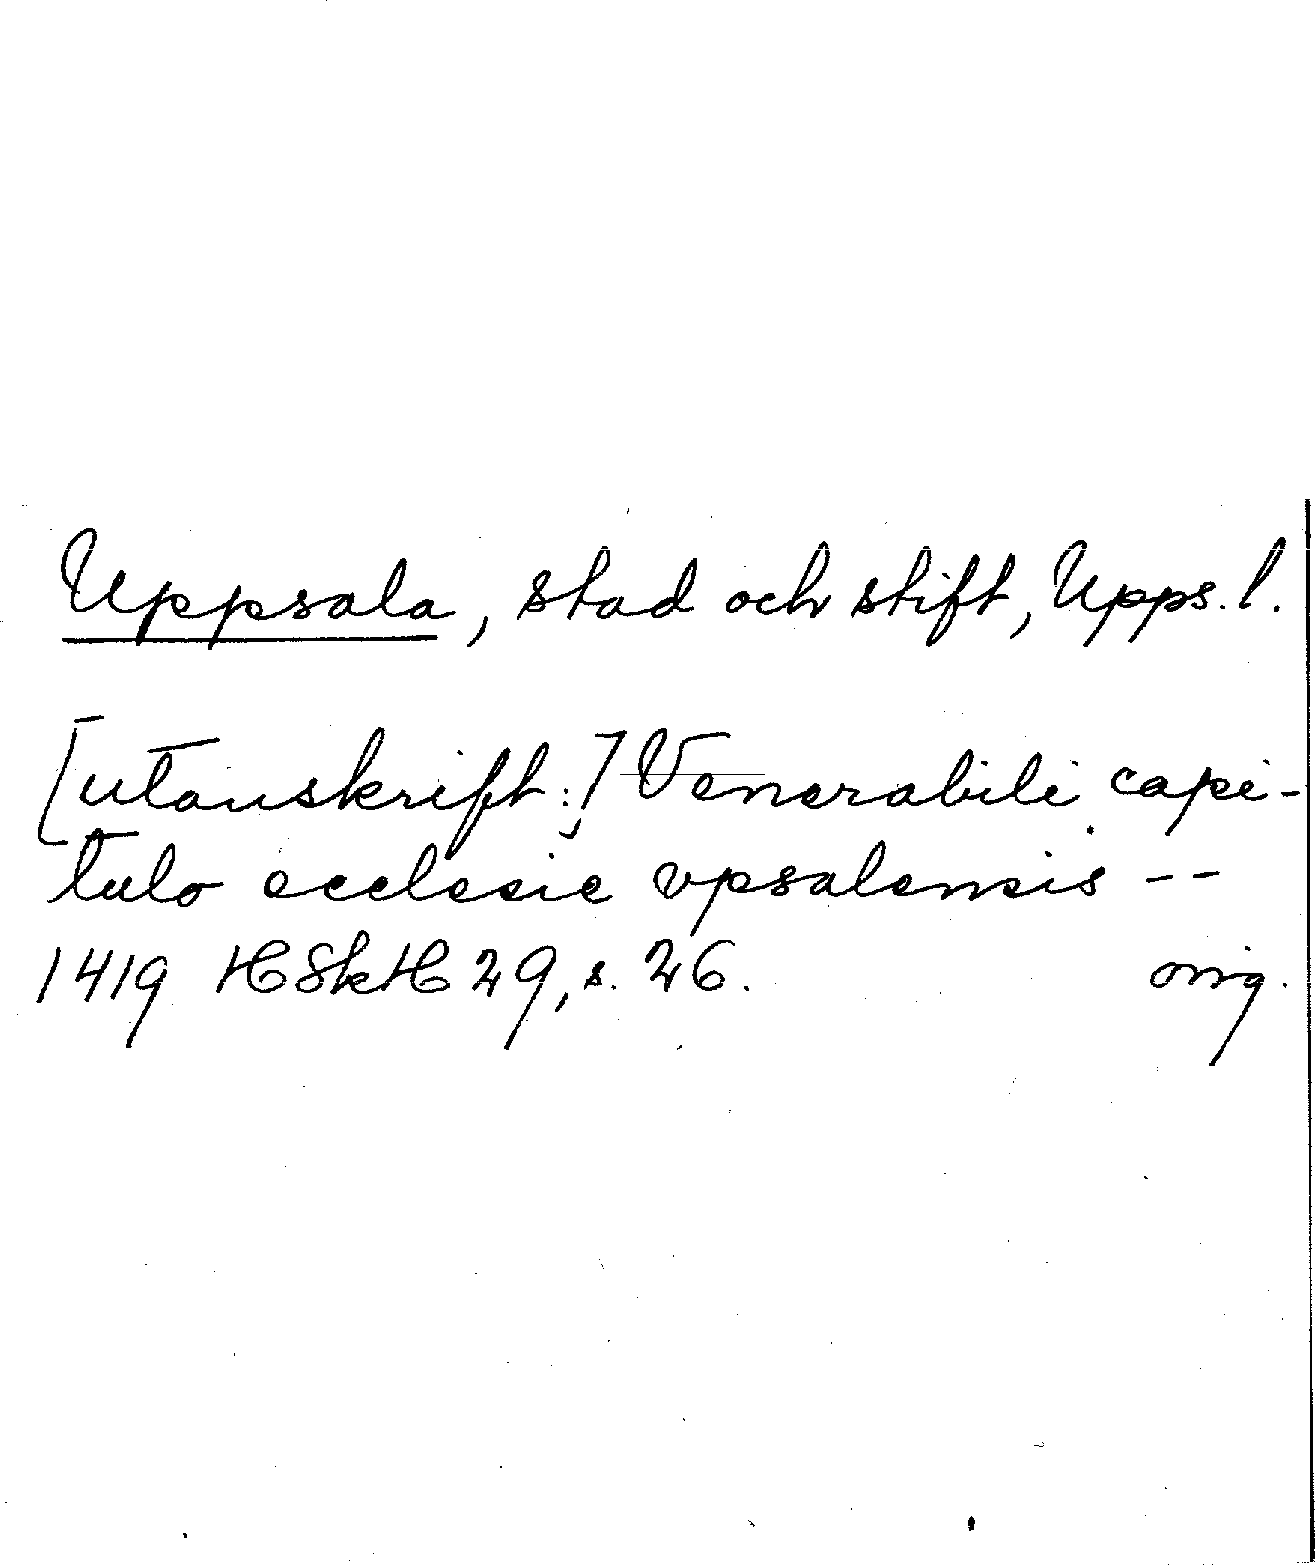 Uppsala, stad och stift, Upps. l.
[utanskrift:] Venerabili capi-
tulo ecclesie vpsalensis --
1419 HSkH 29, s. 26. orig.